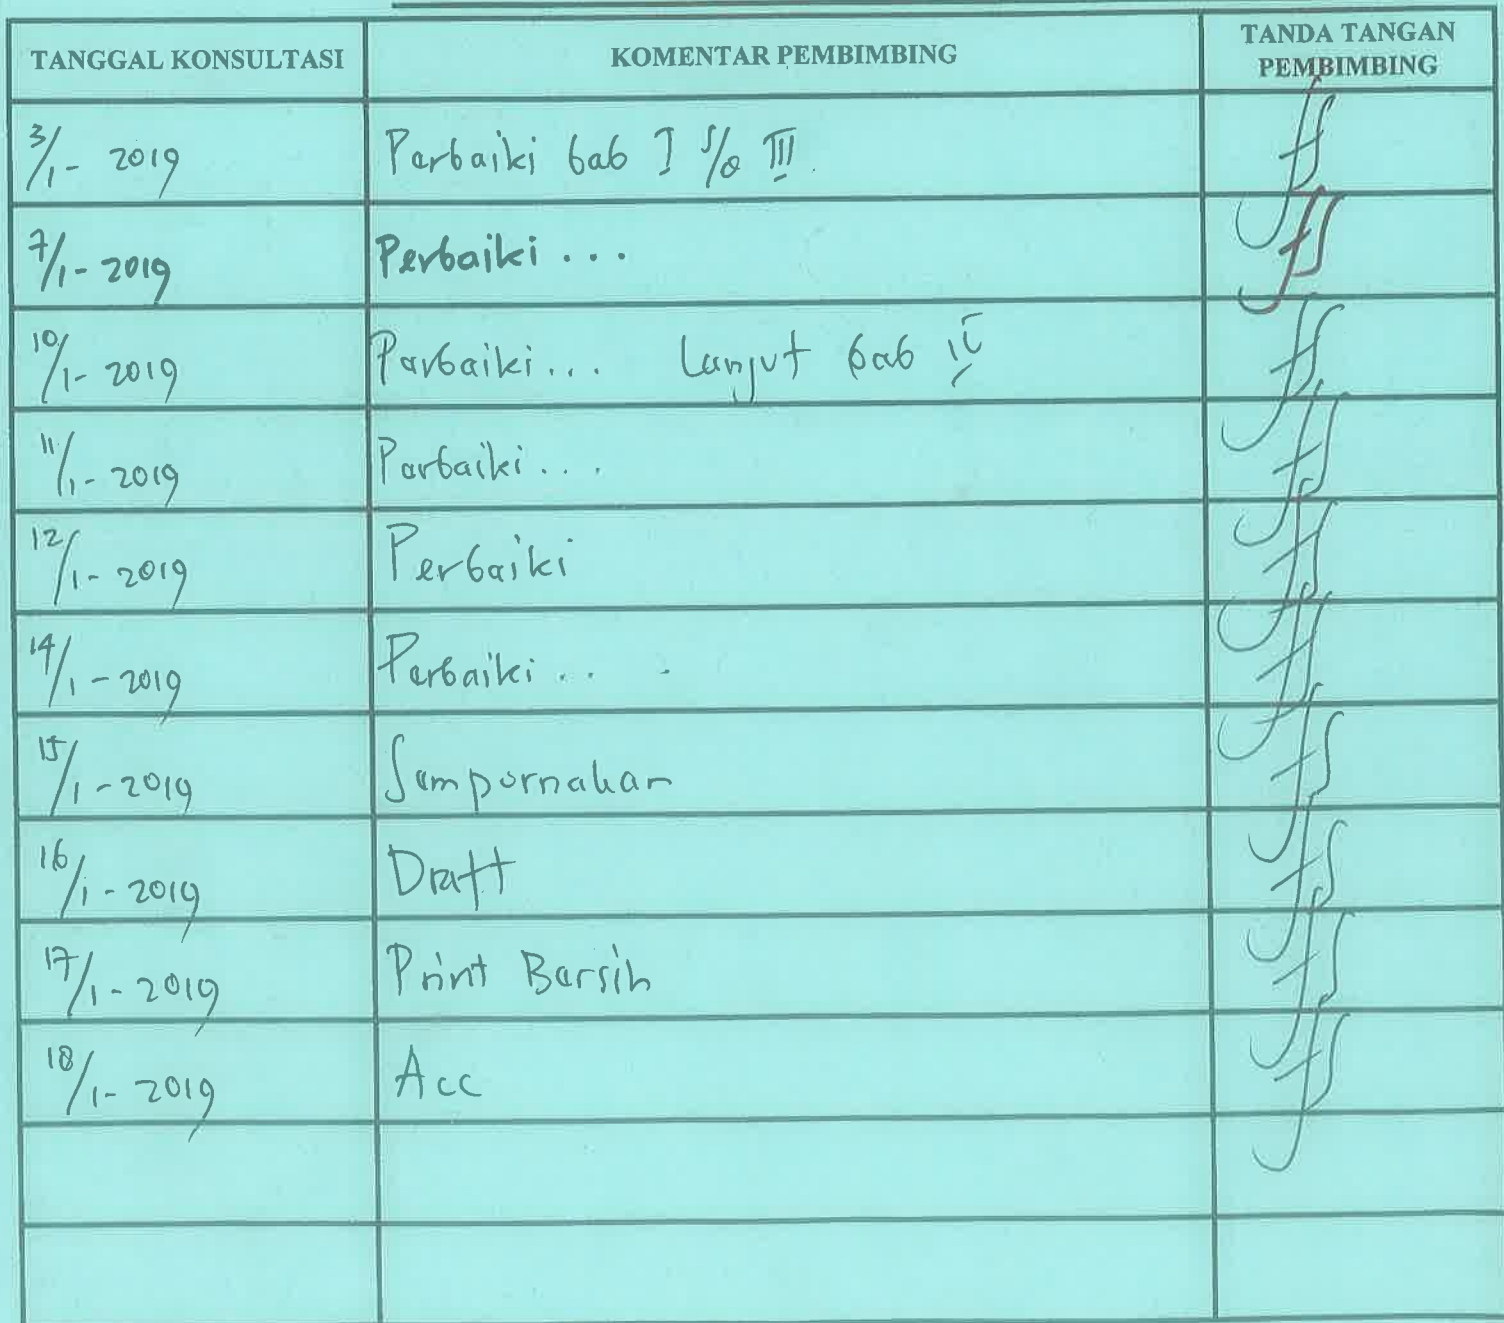 TANGGAL KONSULTASI KOMENTAR PEMBIMBING TANDA TANGAN PEMBIMBING
3/1 - 2019 Perbaiki bab I s/d III
7/1 - 2019 Perbaiki ...
10/1 - 2019 Perbaiki ... Lanjut bab IV
11/1 - 2019 Perbaiki ...
12/1 - 2019 Perbaiki
14/1 - 2019 Perbaiki ...
15/1 - 2019 Sempurnakan
16/1 - 2019 Draft
17/1 - 2019 Print Bersih
18/1 - 2019 Acc